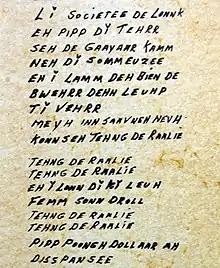 Li Societee de Lonnk
Eh Pipp Di Tehrr
Seh de Gaayaar Kamm
Neh Di Sommeuzee
Eh i Lamm Deh Bien de
Bwehrr Dehn Leuhp
Ti Vehrr
Meuh inn Saavneh Neuh-
Konn Seh Tehng de Raalie
Tehng de Raalie
Tehng de Raalie
Eh i Lonn di Ki Leuh
Femm Sonn Droll
Tehng de Raalie
Tehng de Raalie
Pipp Poongh Dollaar ah
Disspansee